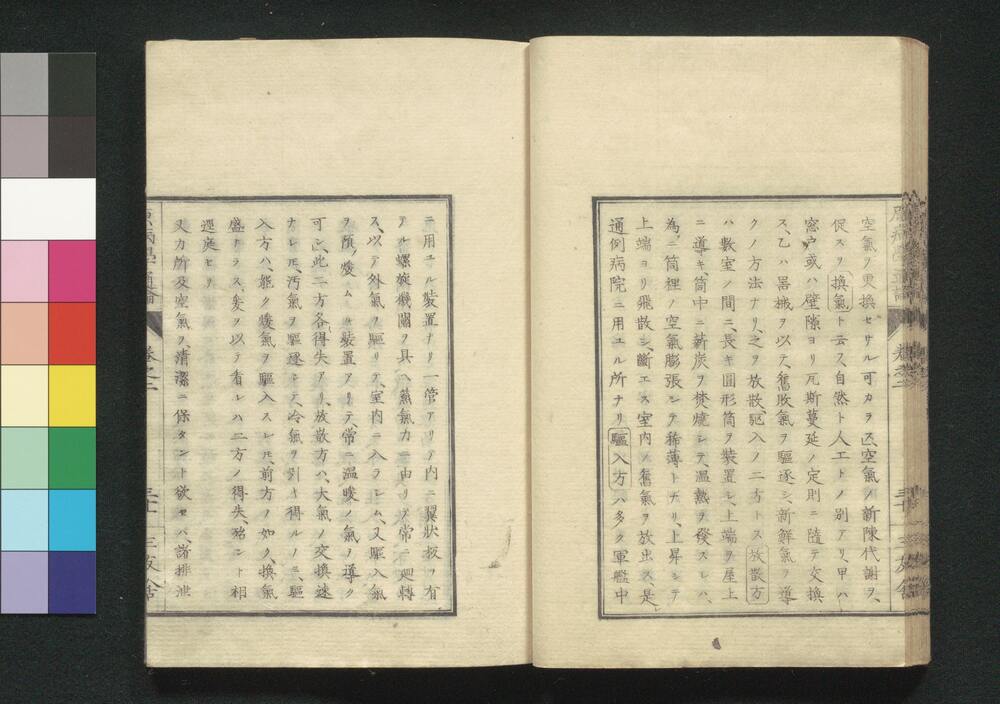 空氣ヲ更換セサル可カラス空氣ノ新陳代謝ヲ、
促スヲ換氣ト云ス、自然ト人工トノ別アリ、甲ハ
窓戸或ハ壁隙ヨリ瓦斯蔓延ノ定則ニ隨テ交換
ス、乙ハ器械ヲ以テ、舊敗氣ヲ驅逐シ、新鮮氣ヲ導
クノ方法ナリ、之ヲ放散、驅入ノ二方トス放散方
ハ數室ノ間ニ、長キ圓形筒ヲ裝置シ、上端ヲ屋上
ニ導キ、筒中ニ薪炭ヲ焚燒シテ、温熱ヲ發スレハ、
為ニ筒裡ノ空氣膨張シテ稀薄トナリ、上昇シテ
上端ヨリ飛散シ、斷エス室内ノ舊氣ヲ放出ス、是
通例病院ニ用ユル所ナリ驅入方ハ多ク軍艦中
ニ用ユル裝置ナリ一管アリテ内ニ翼狀板ヲ有
テル螺旋機關ヲ具ヘ蒸氣力ニ由リテ常ニ廻轉
ス、以テ外氣ヲ驅リテ、室内ニ入ラシム、又驅入氣
ヲ預メ煖ムル裝置アリテ常ニ温暖ノ氣ヲ導ク
可シ、此二方各得失アリ、放散方ハ、大氣ノ交換速
ナレ𪜈、汚氣ヲ驅逐シテ、冷氣ヲ引キ得ルノミ、驅
入方ハ、能ク煖氣ヲ驅入スレ𪜈、前方ノ如ク換氣
盛ナラス、爰ヲ以テ看レハ二方ノ得失、殆ント相
逕庭セリ
又力所及空氣ヲ、清潔ニ保タント欲セバ、諸排泄
原病學通論
卷之二
三友舎